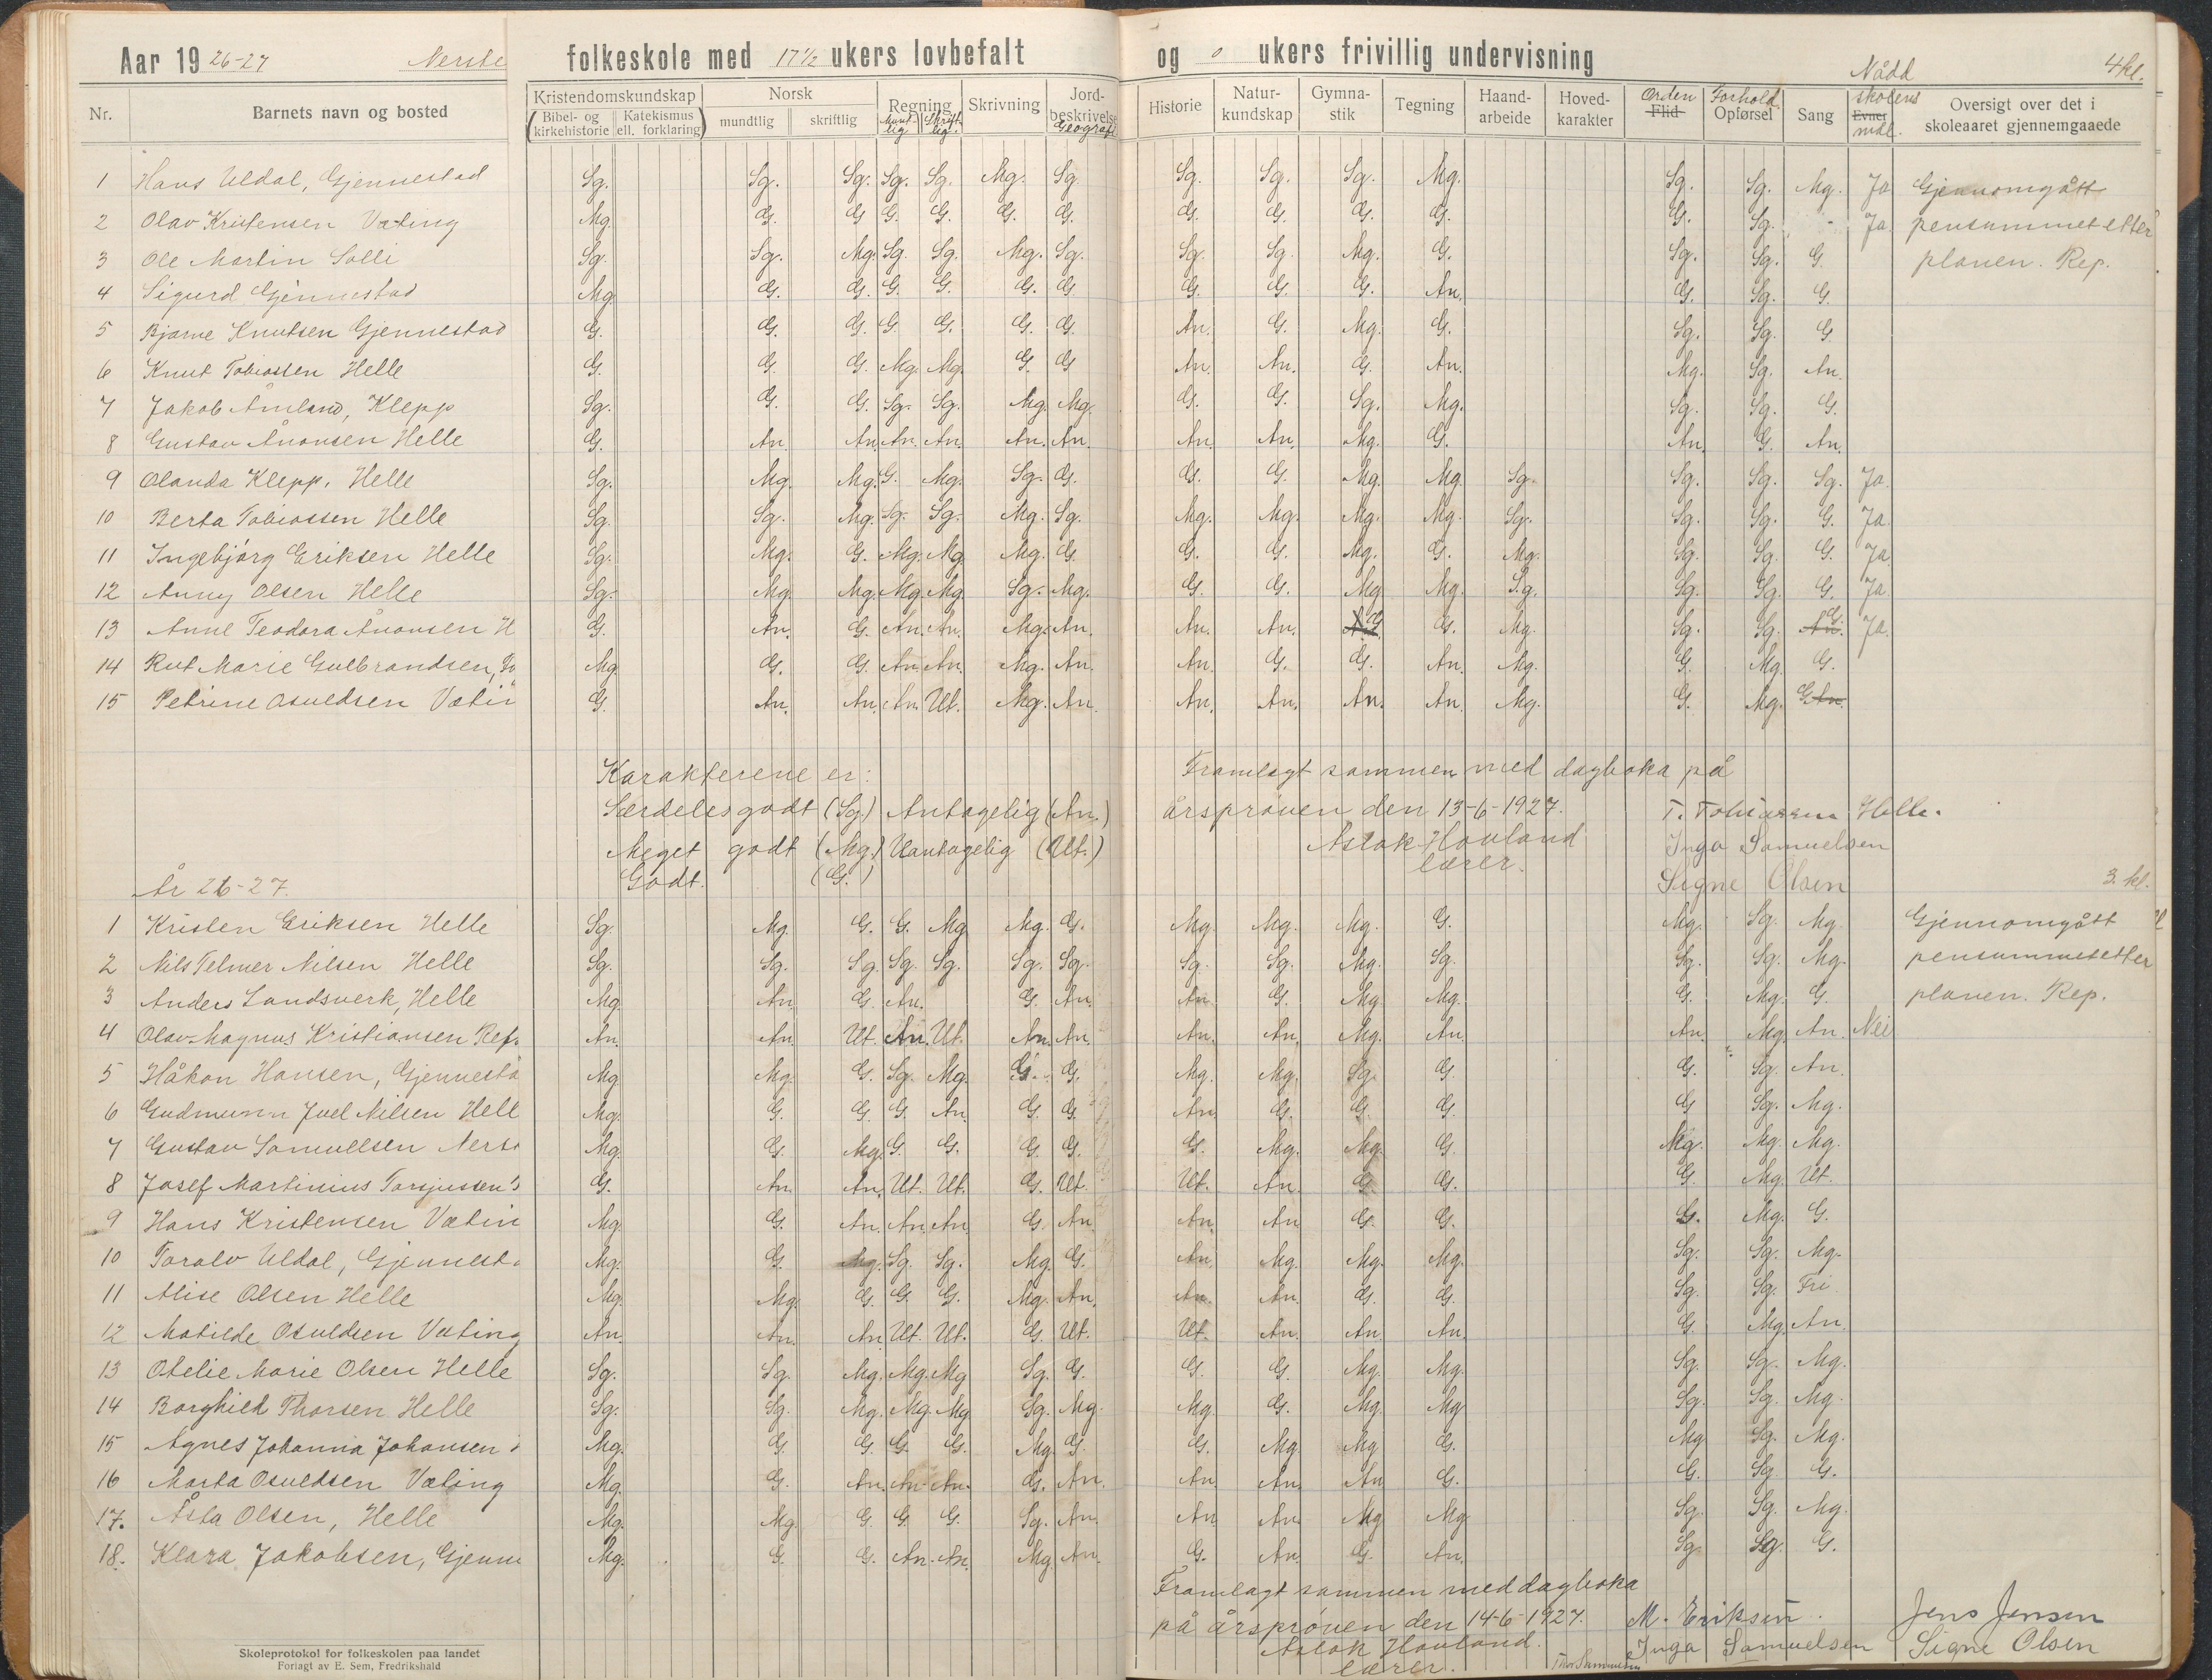 Aar 19 26-27 Nerste folkeskole med 17½ ukers lovbefalt og 0 ukers frivillig undervisning Nådd 4 kl.
Nr. Barnets navn og bosted Kristendomskundskap Bibel- og kirkehistorie Katekismus ell. forklaring Norsk mundtlig skriftlig Regning Munt lig Skrift lig. Skrivning Jord- beskrivelse Geografi Historie Natur- kundskap Gymna- stik Tegning Haand- arbeide Hoved- karakter Orden Flid Forhold Opførsel Sang skolens Evner mål. Oversigt over det i skoleaaret gjennemgaaede
1 Hans Uldal, Gjennestad Sg. Sg. Sg. Sg. Sg. Mg. Sg. Sg. Sg. Sg. Mg. Sg. Sg. Mg. Ja Gjennomgått
2 Olav Kristensen Væting Mg. G. G G. G. G. G. G. G. G. G. G. Sg. - Ja pensummet etter
3 Ole Martin Solli Sg. Sg. Mg. Sg. Sg. Mg. Sg. Sg. Sg. Mg. G. Sg. Sg. G. planen. Rep.
4 Sigurd Gjennestad Mg. G. G. G. G. G. G. G. G. G. An. G. Sg. G.
5 Bjarne Knutsen Gjennestad G. G. G. G. G. G. G. An. G. Mg. G. Sg. Sg. G.
6 Knut Tobiassen Helle G. G. G. Mg. Mg. G. G An. An. G. An. Mg. Sg. An.
7 Jakob Åmland, Klepp Sg. G. G. Sg. Sg. Mg. Mg. G. G. Sg. Mg. Sg. Sg. G.
8 Gustav Ånonsen Helle G. An An. An. An. An. An. An. An. Mg. G. An. G. An.
9 Olanda Klepp. Helle Sg. Mg. Mg. G. Mg. Sg. G. G. G. Mg. Mg. Sg. Sg. Sg. Sg. Ja.
10 Berta Tobiassen Helle Sg. Sg. Mg. Sg. Sg. Mg. Sg. Mg. Mg. Mg. Mg. Sg. Sg. Sg. G. Ja.
11 Ingebjørg Eriksen Helle Sg. Mg. G. Mg. Mg. Mg. G. G. G. Mg. G. Mg. Sg. Sg. G. Ja
12 Anny Olsen Helle Sg. Mg. Mg. Mg. Mg Sg. Mg. G. G. Mg Mg. Sg. Sg. Sg. G. Ja.
13 Anne Teodora Ånonsen H G. An. G. An. An. Mg. An. An. An. G G. Mg. Sg. Sg. An. G. Ja.
14 Rut Marie Gulbrandsen, Mg G. G. An. An. Mg. An. An. G. G. An. Mg. G. Mg. G.
15 Petrine Osuldsen Vætin G. An. An. An. Ut. Mg. An. An. An. An. An. Mg. G. Mg. G An.
Karakterene er: Framlagt sammen med dagboka på
Særdeles godt (Sg.) Antagelig (An.) årsprøven den 13-6-1927. T. Tobiassen Helle.
Meget godt (Mg.) Uantagelig (Ut.) Aslak Hovland Inga Samuelsen
Godt. (G.) lærer. Signe Olsen
År 26-27. 3. kl.
1 Kristen Eriksen Helle Sg. Mg. G. G. Mg Mg. G. Mg. Mg. Mg. G. Mg. Sg. Mg. Gjennomgått
2 Nils Telmer Nilsen Helle Sg. Sg. Sg. Sg. Sg. Sg. Sg. Sg. Sg. Mg. Sg. Sg. Sg. Mg. pensummet etter
3 Anders Landsverk, Helle Mg. An. G. An. G. An. An G. Mg. Mg. G. Mg. G. planen. Rep.
4 Olav Magnus Kristiansen Refs An. An. Ut. An. Ut. An. An. An. An. Mg. An. An. Mg. An. Nei
5 Håkon Hansen, Gjennesta Mg. Mg. G. Sg. Mg. G. G. Mg. Mg. Sg. G. G. Sg. An.
6 Gudmunn Juel Nilsen Hell Mg. G. G. G. An. G. G. An. G. G. G. G Sg. Mg.
7 Gustav Samuelsen Ners Mg. G. Mg. G. G. G. G. G. Mg. Mg. G. Mg. Mg. Mg.
8 Josef Martinius Torsjussen G. An. An. Ut. Ut. G. Ut. Ut. An. G. G. G. Mg. Ut.
9 Hans Kristensen Vætin Mg. G. An. An. An G. An An. An G. G. G. Mg. G.
10 Toralv Uldal, Gjennest Mg. G. Mg. Sg. Sg. Mg. G. An. Mg. Mg. Mg. Sg. Sg. Mg.
11 Alise Olsen Helle Mg. Mg. G. G. G. Mg. An. An. An. G. G. Sg. Sg. Fri
12 Matilde Osuldsen Væting An. An. An Ut. Ut. G. Ut. Ut. An. An An. G. Mg. An.
13 Otelie Marie Olsen Helle Sg. Sg. Mg. Mg. Mg Sg. G. G. G. Mg. Mg. Sg. Sg. Mg.
14 Borghild Thorsen Helle Sg. Sg. Mg. Mg. Mg Sg. Mg. Mg. G. Mg. Mg Sg. Sg. Mg.
15 Agnes Johanna Johansen Mg. G. G. G. G. Mg. G. G. Mg. Mg G. Mg Sg. Mg.
16 Marta Osuldsen Væting Mg. G. An. An. An. G. An. An. An. An G. G. Sg. G.
17. Åsta Olsen, Helle Mg. Mg. G. G. G. Sg. An. An An. Mg Mg. Sg. Sg. Mg.
18. Klara Jakobsen, Gjenne Mg. G. G. An. An. Mg An. G. An. G. An. Sg. Sg. G.
Framlagt sammen med dagboka
på årsprøven den 14-6-1927. M. Eriksen. Jens Jensen
Aslak Hovland. Inga Samuelsen Signe Olsen
lærer.
Skoleprotokol for folkeskolen paa landet
Forlagt av E. Sem, Fredrikshald